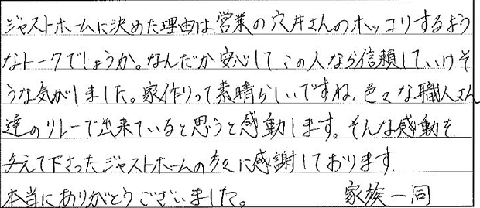 ジャストホームに決めた理由は営業の穴井さんのホッコリするよう
なトークでしょうか。なんだか安心してこの人なら信頼していけそ
うな気がしました。家作りって素晴らしいですね。色々な職人さん
達のリレーで出来ていると思うと感動します。そんな感動を
与えて下さったジャストホームの方々に感謝しております。
本当にありがとうございました。 家族一同